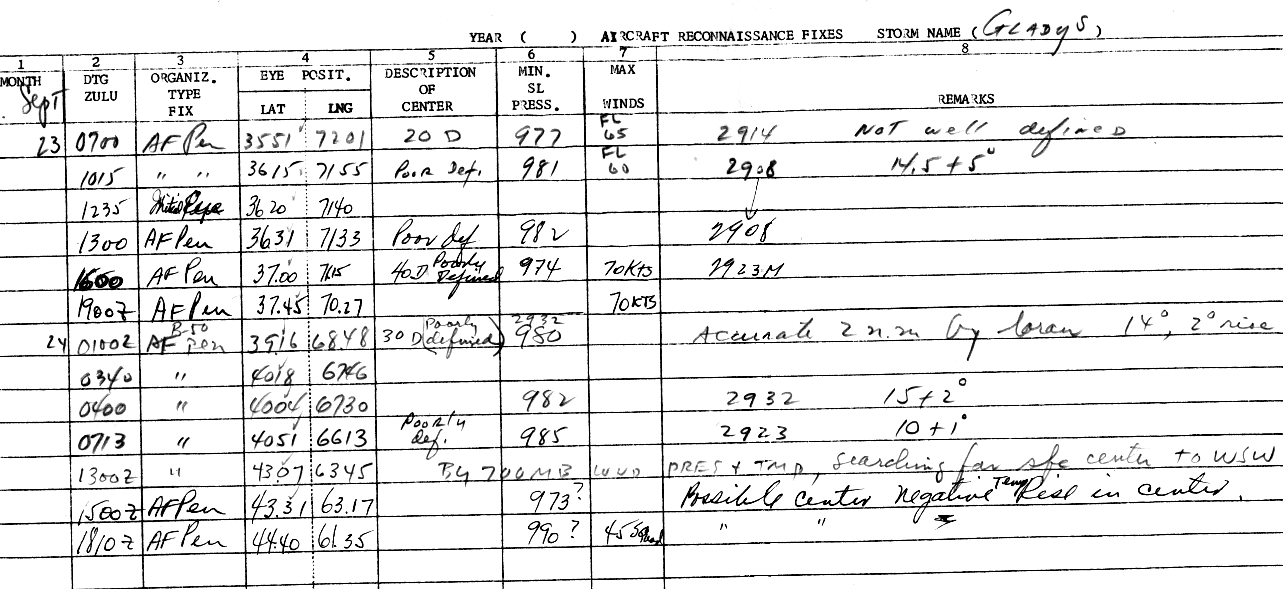 YEAR ( ) AIRCRAFT RECONNAISSANCE FIXES STORM NAME (GLADYS)
1 2 3 4 5 6 7 8
MONTH DTG ZULU ORGANIZ. TYPE FIX EYE POSIT. LAT LNG DESCRIPTION OF CENTER MIN. SL PRESS. MAX WINDS REMARKS
Sept
23 0700 AF Pen 3551 7201 20 D 977 FL 65 2914 Not well defined
1015 " " 3615 7155 Poor Def. 981 FL 60 2908 14.5 + 5°
1235 3620 7140
1300 AF Pen 3631 7133 Poor def 982 2908
1600 AF Pen 37.00 7115 40 D Poorly Defined 974 70 KTS 2923M
1900Z AF Pen 37.45 70.27 70 KTS
24 0100Z B-50 AF Pen 3916 68.48 30 D (Poorly defined) 2932 980 Accurate 2 n.m by loran 14°, 2° rise
0340 " 4018 6746
0400 " 4004 6730 982 2932 15 + 2°
0713 " 4051 6613 Poorly def. 985 2923 10 + 1°
1300Z " 4307 6345 By 700 MB WND PRES & TMP, searching for sfc center to WSW
1500Z AF Pen 43.31 63.17 973? Possible center Negative Temp Rise in center.
1810Z AF Pen 44.40 61.35 990? 45 " "